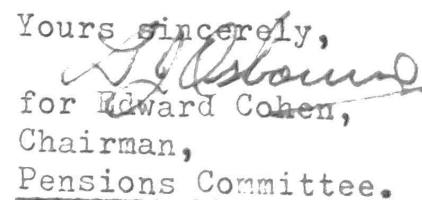 Yours sincerely,
G J Osborne
for Edward Cohen,
Chairman,
Pensions Committee.